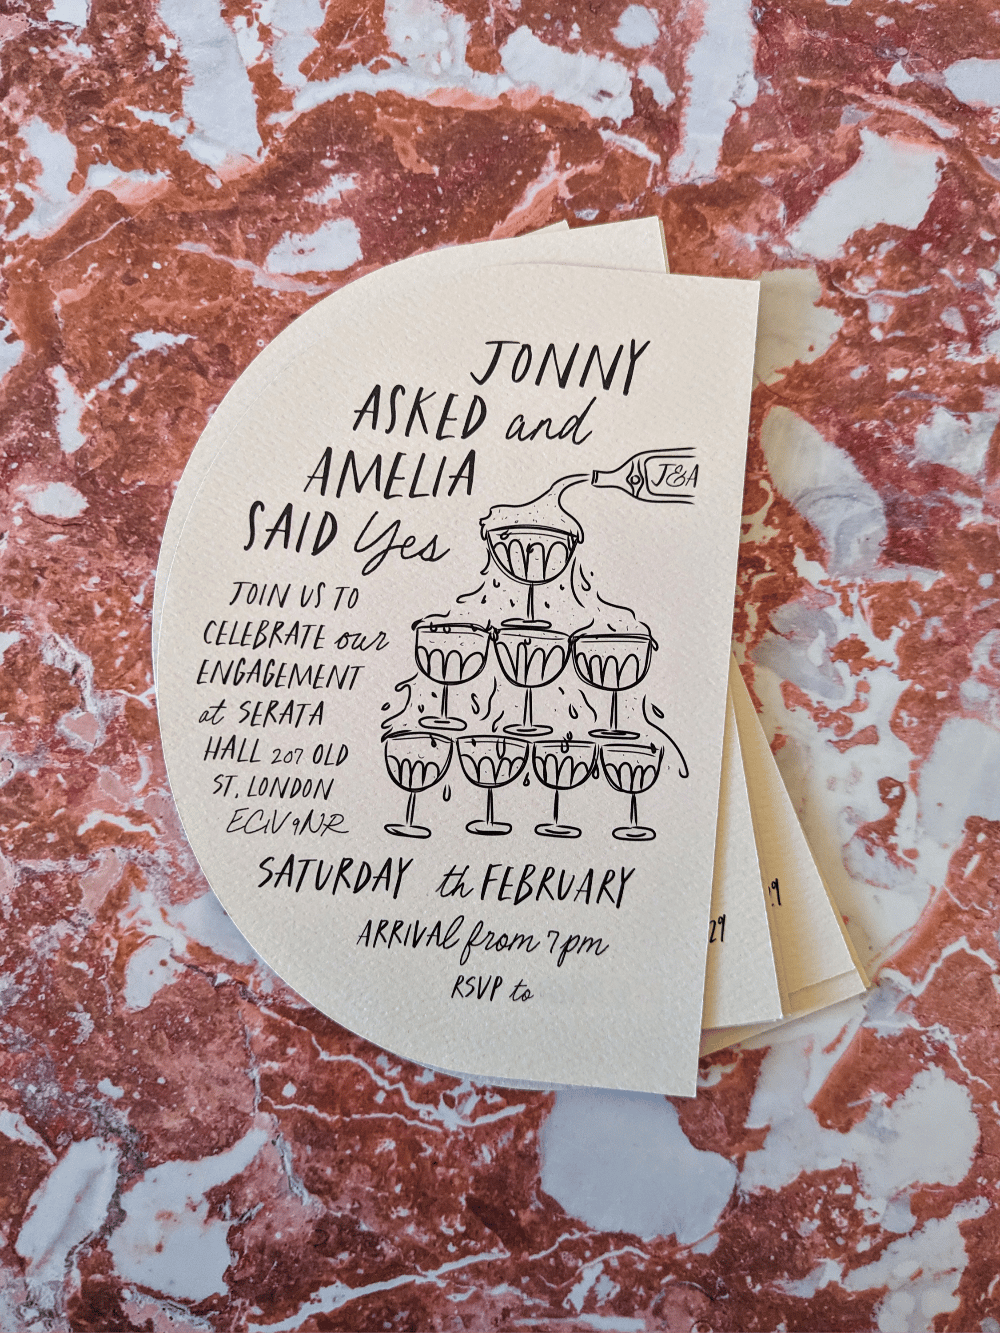 JONNY
ASKED and
AMELIA
SAID Yes
J&A
JOIN US TO
CELEBRATE our
ENGAGEMENT
at SERATA
HALL 207 OLD
ST, LONDON
EC1V 9NR
SATURDAY th FEBRUARY
ARRIVAL from 7pm
RSVP to
29
19